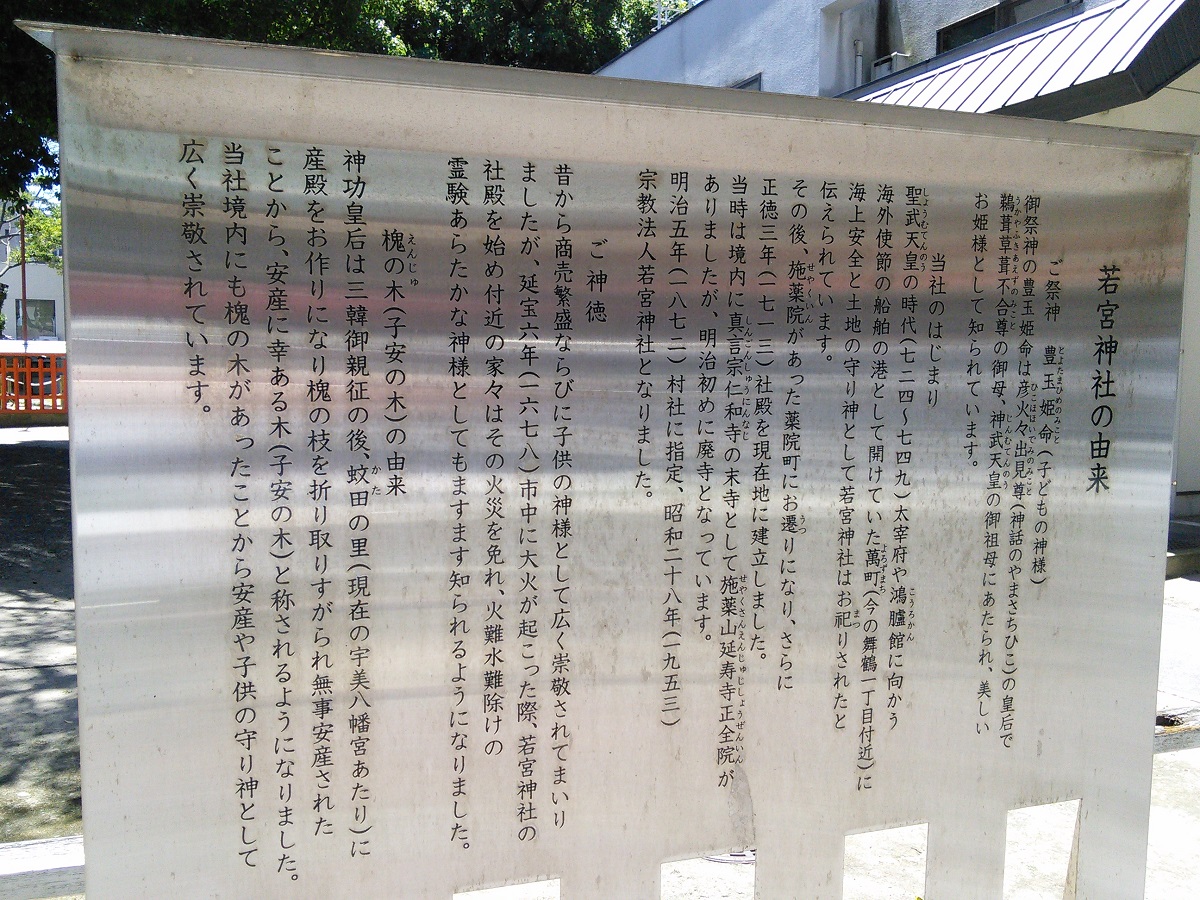 若宮神社の由来
ご祭神　豊玉姫命(子どもの神様)
御祭神の豊玉姫命は彦火々出見尊(神話のやまさちひこ)の皇后で
鵜葺草葺不合尊の御母、神武天皇の御祖母にあたられ、美しい
お姫様として知られています。
当社のはじまり
聖武天皇の時代(七二四〜七四九)太宰府や鴻臚館に向かう
海外使節の船舶の港として開けていた萬町(今の舞鶴一丁目付近)に
海上安全と土地の守り神として若宮神社はお祀りされたと
伝えられています。
その後、施薬院があった薬院町にお遷りになり、さらに
正徳三年(一七一三)社殿を現在地に建立しました。
当時は境内に真言宗仁和寺の末寺として施薬山延寿寺正全院が
ありましたが、明治初めに廃寺となっています。
明治五年(一八七二)村社に指定、昭和二十八年(一九五三)
宗教法人若宮神社となりました。
ご神徳
昔から商売繁盛ならびに子供の神様として広く崇敬されてまいり
ましたが、延宝六年(一六七八)市中に大火が起こった際、若宮神社の
社殿を始め付近の家々はその火災を免れ、火難水難除けの
霊験あらたかな神様としてもますます知られるようになりました。
槐の木(子安の木)の由来
神功皇后は三韓御親征の後、蚊田の里(現在の宇美八幡宮あたり)に
産殿をお作りになり槐の枝を折り取りすがられ無事安産された
ことから、安産に幸ある木(子安の木)と称されるようになりました。
当社境内にも槐の木があったことから安産や子供の守り神として
広く崇敬されています。